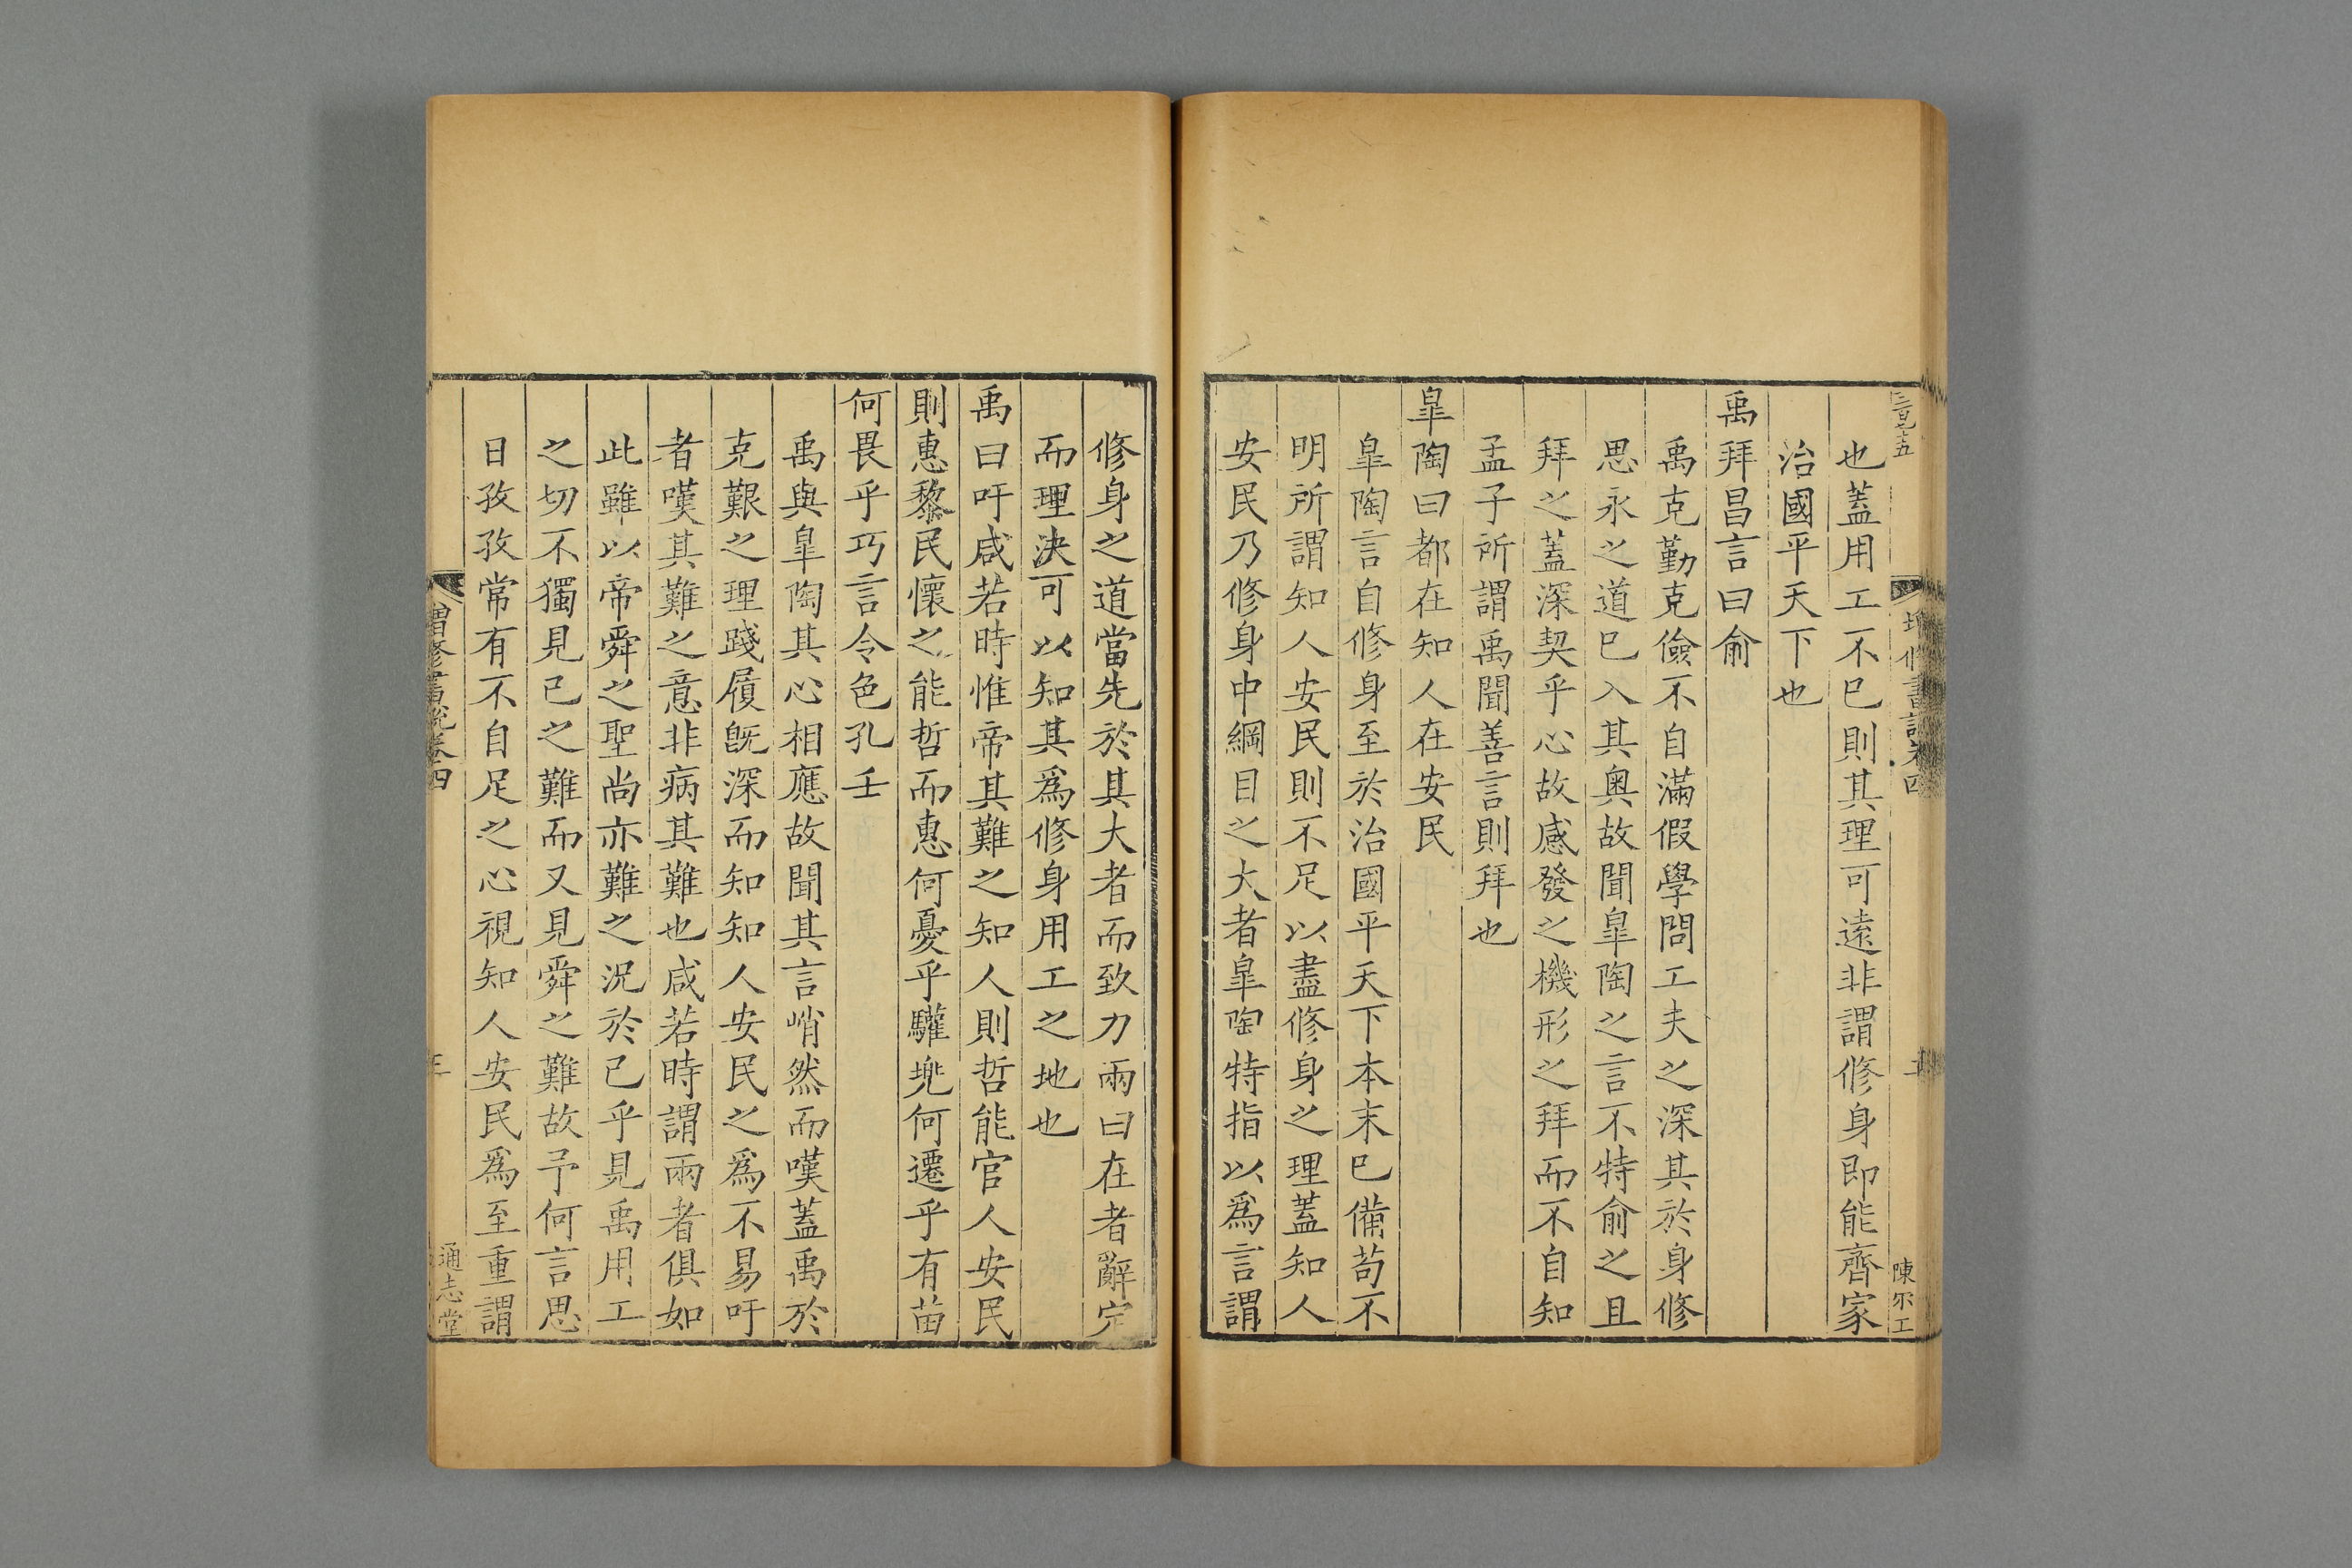 也蓋用工不已則其理可遠非謂修身即能齊家
治國平天下也
禹拜昌言曰俞
禹克勤克儉不自滿假學問工夫之深其於身修
思永之道已入其奧故聞臯陶之言不特俞之且
拜之蓋深契乎心故感發之機形之拜而不自知
孟子所謂禹聞善言則拜也
臯陶曰都在知人在安民
臯陶言自修身至於治國平天下本末已備苟不
明所謂知人安民則不足以盡修身之理蓋知人
安民乃修身中綱目之大者臯陶特指以為言謂
陳尔工
修身之道當先於其大者而致力兩曰在者辭定
而理決可以知其為修身用工之地也
禹曰吁咸若時惟帝其難之知人則哲能官人安民
則惠黎民懷之能哲而惠何憂乎驩兜何遷乎有苗
何畏乎巧言令色孔壬
禹與臯陶其心相應故聞其言悄然而嘆蓋禹於
克艱之理踐履既深而知知人安民之為不易吁
者嘆其難之意非病其難也咸若時謂兩者俱如
此雖以帝舜之聖尚亦難之況於己乎見禹用工
之切不獨見己之難而又見舜之難故予何言思
日孜孜常有不自足之心視知人安民為至重謂
增修書說卷四
通志堂